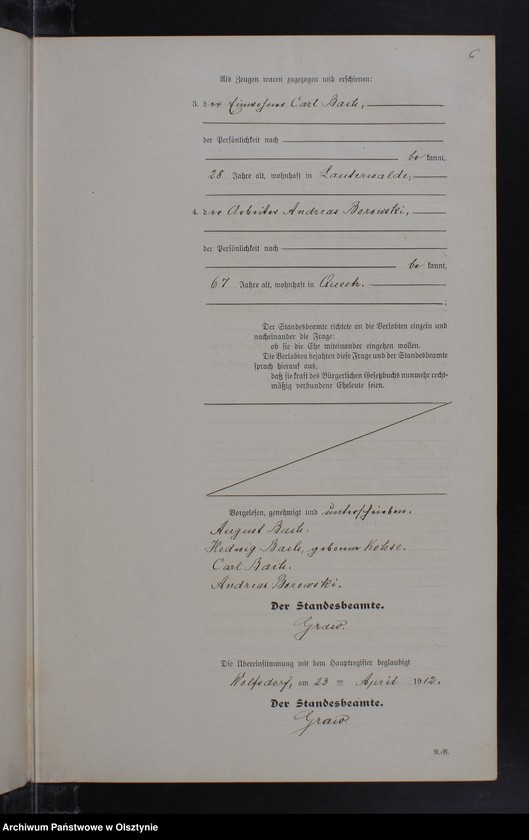 6
Als Zeugen waren zugezogen und erschienen:
3. der Einwohner Carl Bach,
der Persönlichkeit nach
be kannt,
28 Jahre alt, wohnhaft in Lauterwalde,
4. der Arbeiter Andreas Borowski,
der Persönlichkeit nach
be kannt,
67 Jahre alt, wohnhaft in Queetz.
;
Der Standesbeamte richtete an die Verlobten einzeln und
nacheinander die Frage:
ob sie die Ehe miteinander eingehen wollen.
Die Verlobten bejahten diese Frage und der Standesbeamte
sprach hierauf aus,
daß sie kraft des Bürgerlichen Gesetzbuchs nunmehr recht-
mäßig verbundene Eheleute seien.
Vorgelesen, genehmigt und unterschrieben.
August Bach.
Hedwig Bach, geborene Kohse.
Carl Bach.
Andreas Borowski.
Der Standesbeamte.
Graw.
Die Übereinstimmung mit dem Hauptregister beglaubigt
Wolfsdorf, am 23 ten April 1912.
Der Standesbeamte.
Graw.
N.-R.
Archiwum Państwowe w Olsztynie